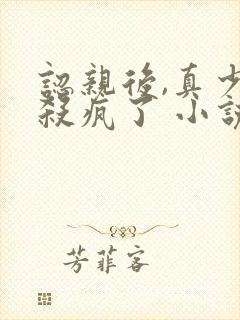 認親後,真少
殺瘋了 小說
芳菲客